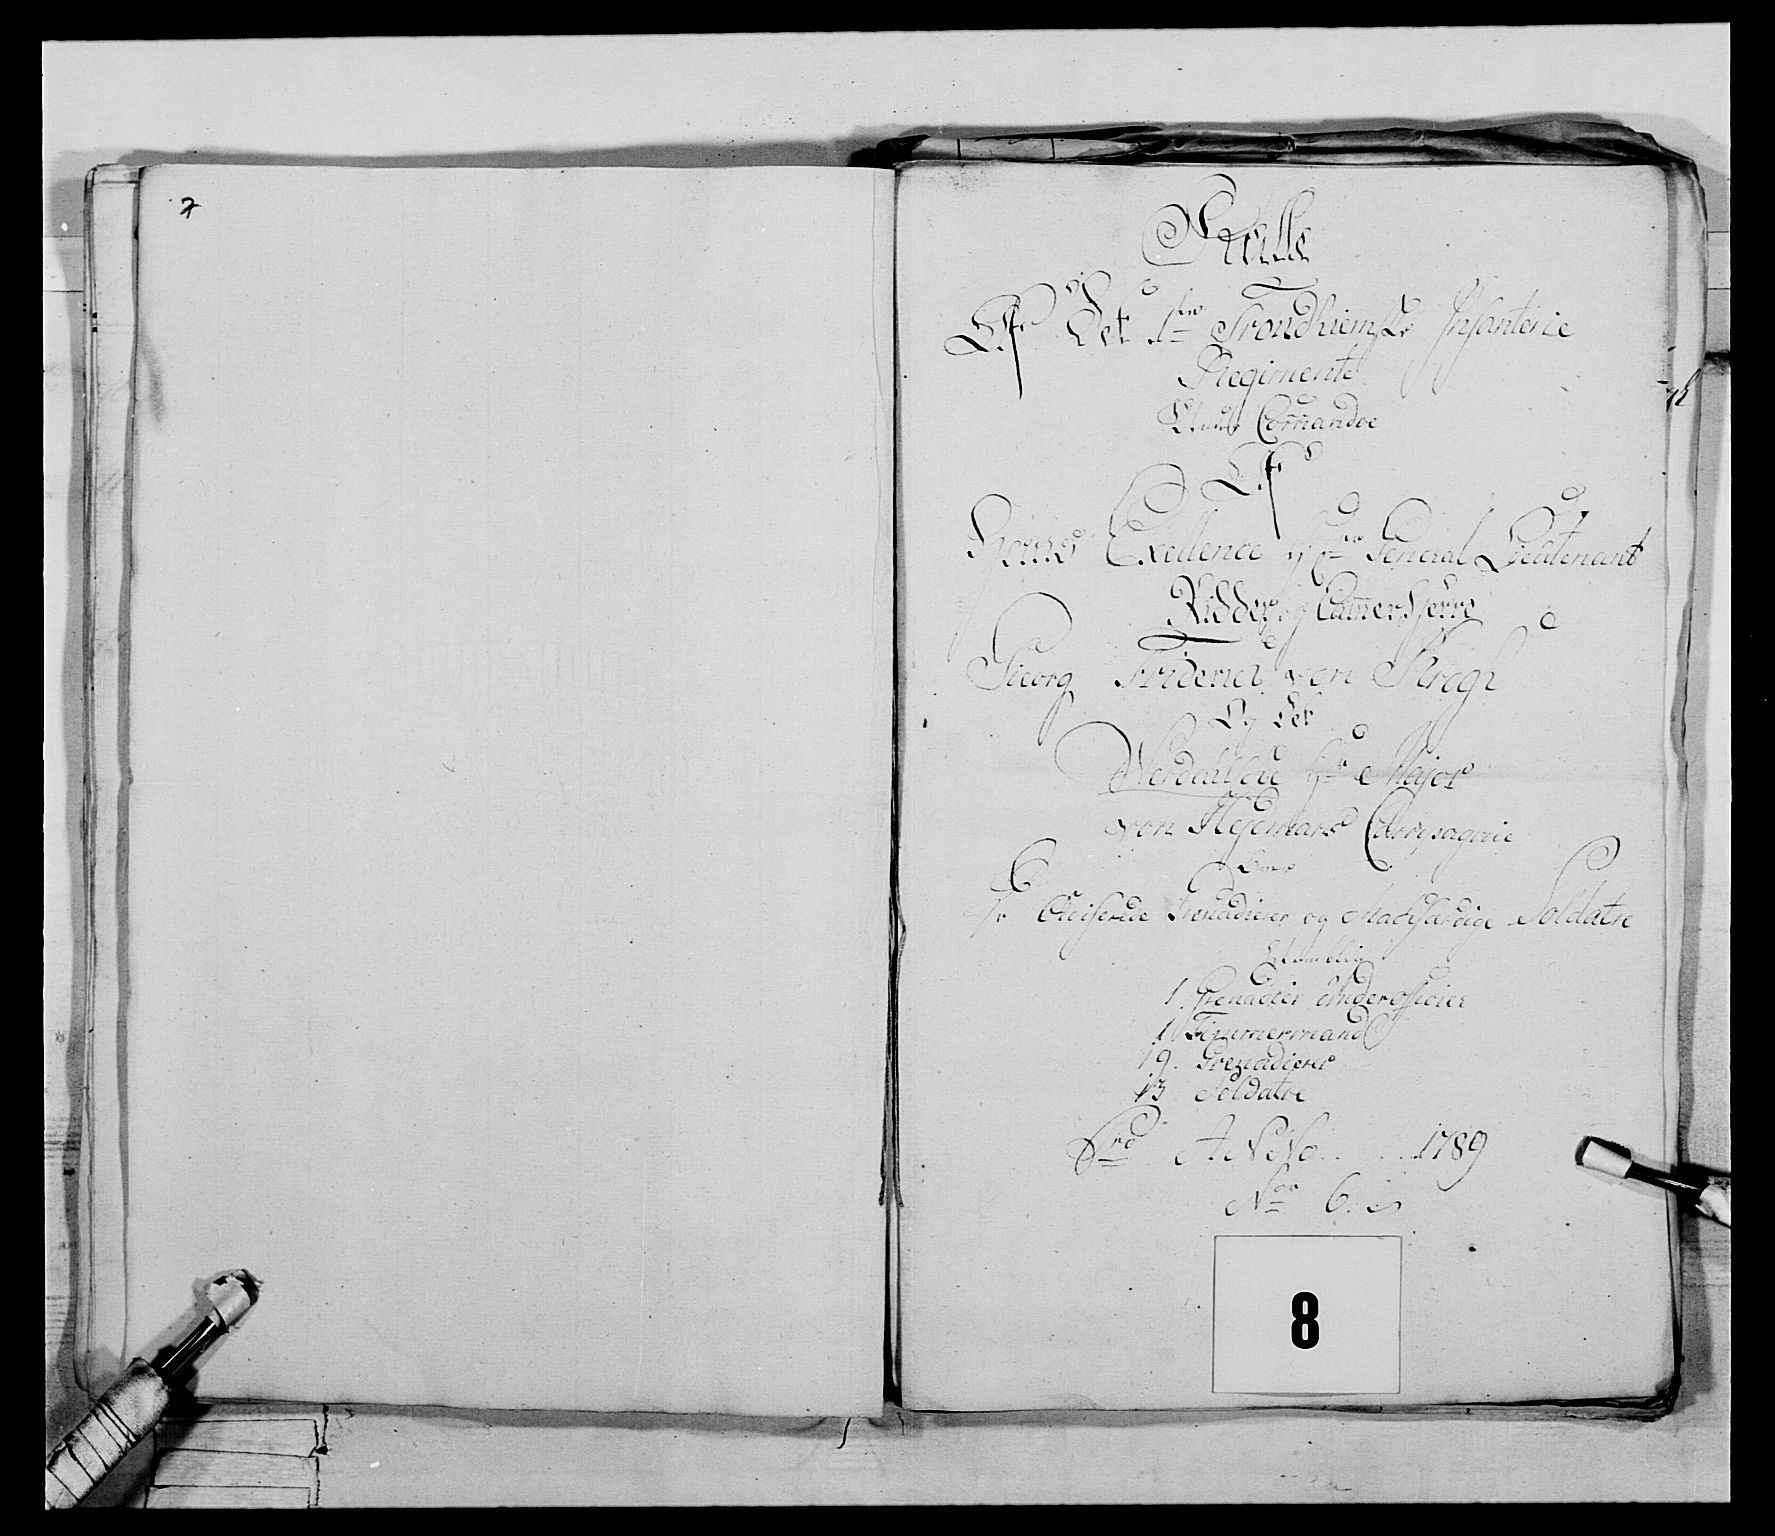 7
Rulle
Af Det 1ste Trondhiemske Infanterie
Regimente
Under Commandoe
Af
Hans Exellence Hr General Lieutenant
Ridder og Cammerherre
Georg Friderich von Krogh
Og det
Werdalske Hr Major
von Hegemans Compagnie
Over
Afviiserede Grenadierer og Maadefærdige Soldatre
Nemblig
1 Grenadier Underofficier
1 Timmermand
19. Grenadierer
13 Soldatre
Pro ANNo . . . . 1789
Nor 6.
8